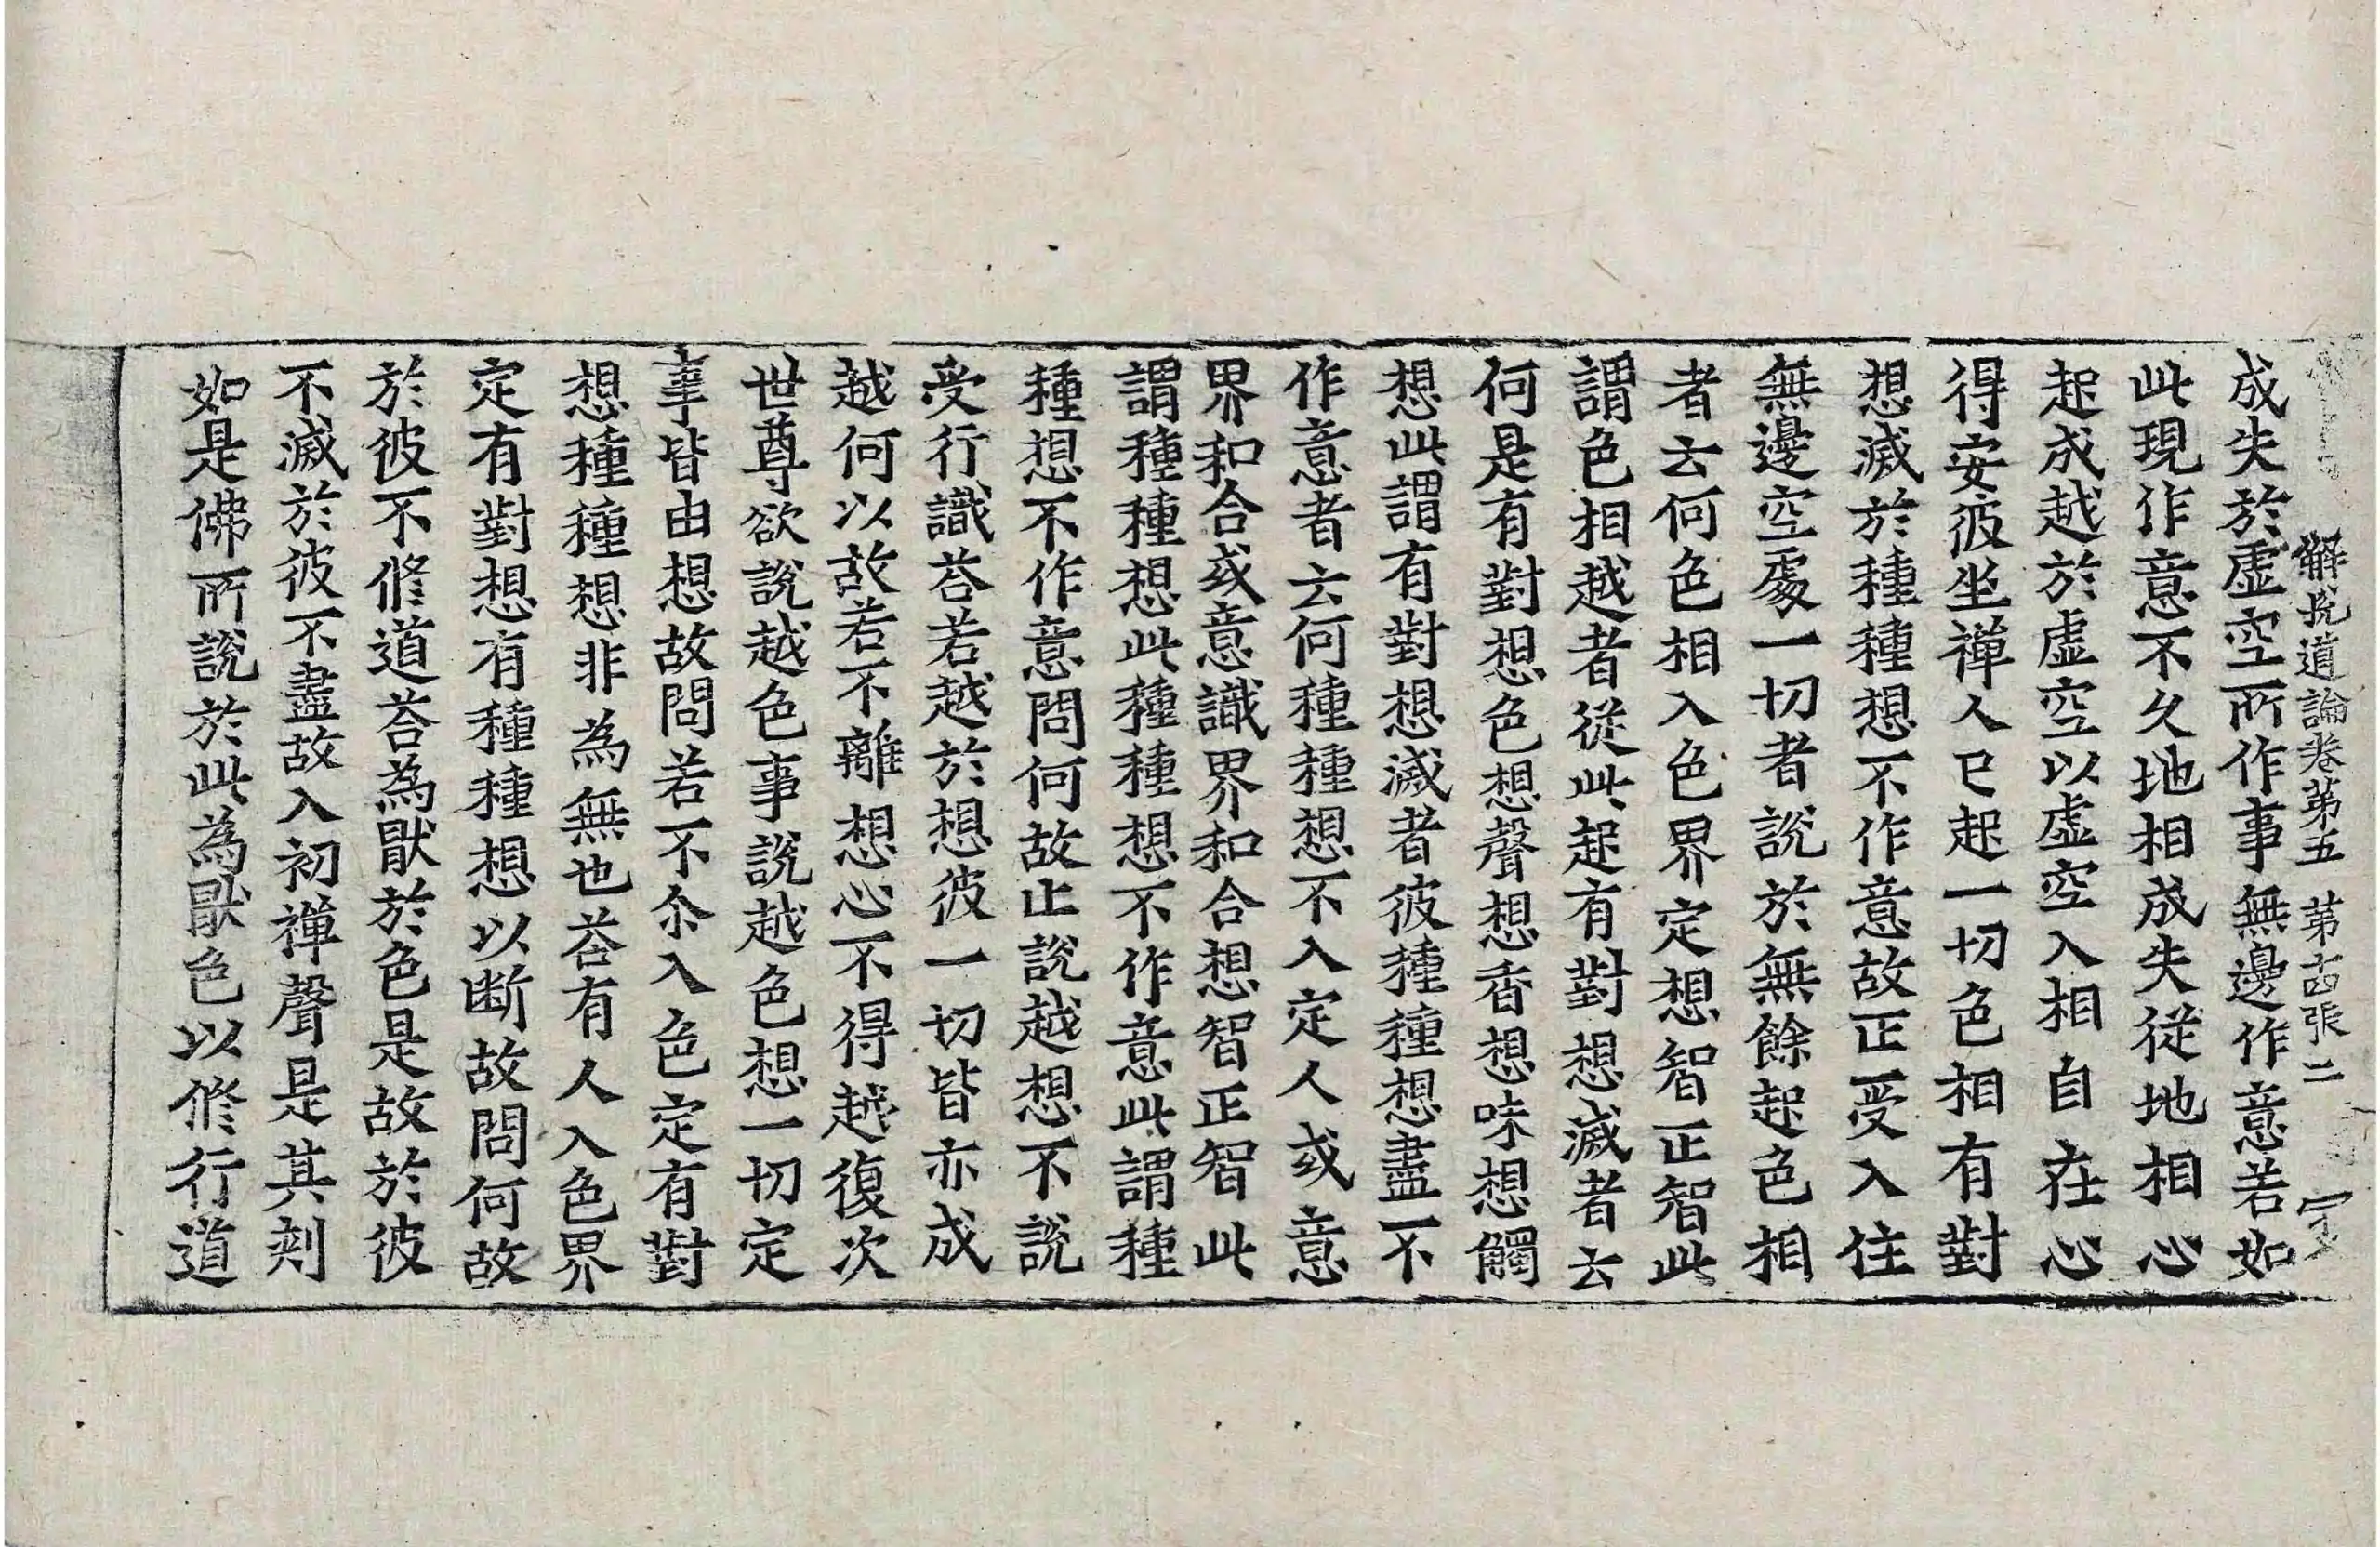 解脫道論卷第五 第十四張 二
成失於虛空所作事無邊作意若如
此現作意不久地相成失從地相心
起成越於虛空以虛空入相自在心
得安彼坐禪人已起一切色相有對
想滅於種種想不作意故正受入住
無邊空處一切者說於無餘起色相
者云何色相入色界定想智正智此
謂色相越者從此起有對想滅者云
何是有對想色想聲想香想味想觸
想此謂有對想滅者彼種種想盡不
作意者云何種種想不入定人或意
界和合或意識界和合想智正智此
謂種種想此種種想不作意此謂種
種想不作意問何故止說越想不說
受行識荅若越於想彼一切皆亦成
越何以故若不離想心不得越復次
世尊欲說越色事說越色想一切定
事皆由想故問若不尒入色定有對
想種種想非為無也荅有人入色界
定有對想有種種想以断故問何故
於彼不修道荅為猒於色是故於彼
不滅於彼不盡故入初禪聲是其刾
如是佛所說於此為猒色以修行道